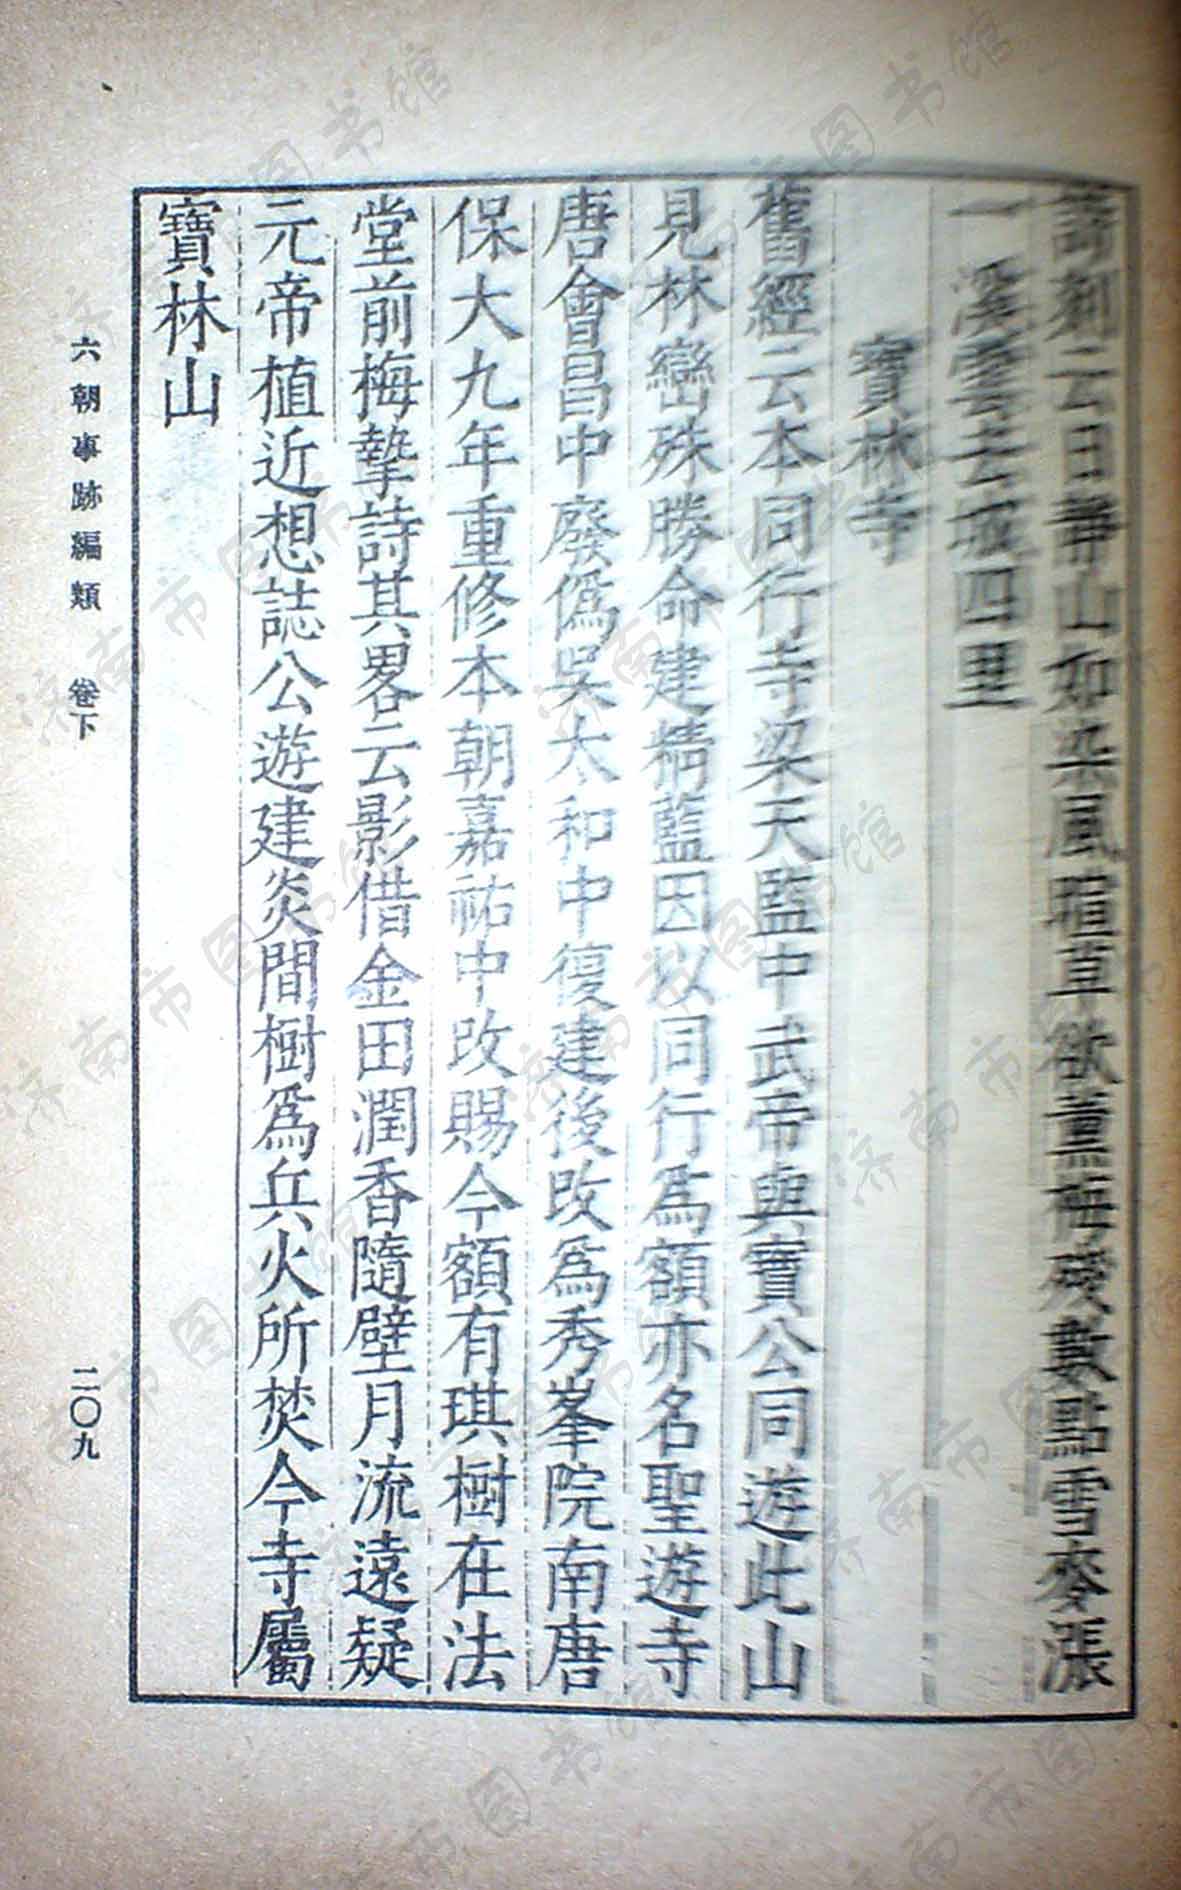 詩刻云日靜山如染風暄草欲薰梅殘數點雪麥漲
一溪雲去城四里
寶林寺
舊經云本同行寺梁天監中武帝與寶公同遊此山
見林巒殊勝命建精藍因以同行爲額亦名聖遊寺
唐會昌中廢僞吳太和中復建後改爲秀峯院南唐
保大九年重修本朝嘉祐中改賜今額有琪樹在法
堂前梅摯詩其畧云影借金田潤香隨壁月流遠疑
元帝植近想誌公遊建炎間樹爲兵火所焚今寺屬
寶林山
六朝事跡編類 卷下
二〇九
济南市图书馆